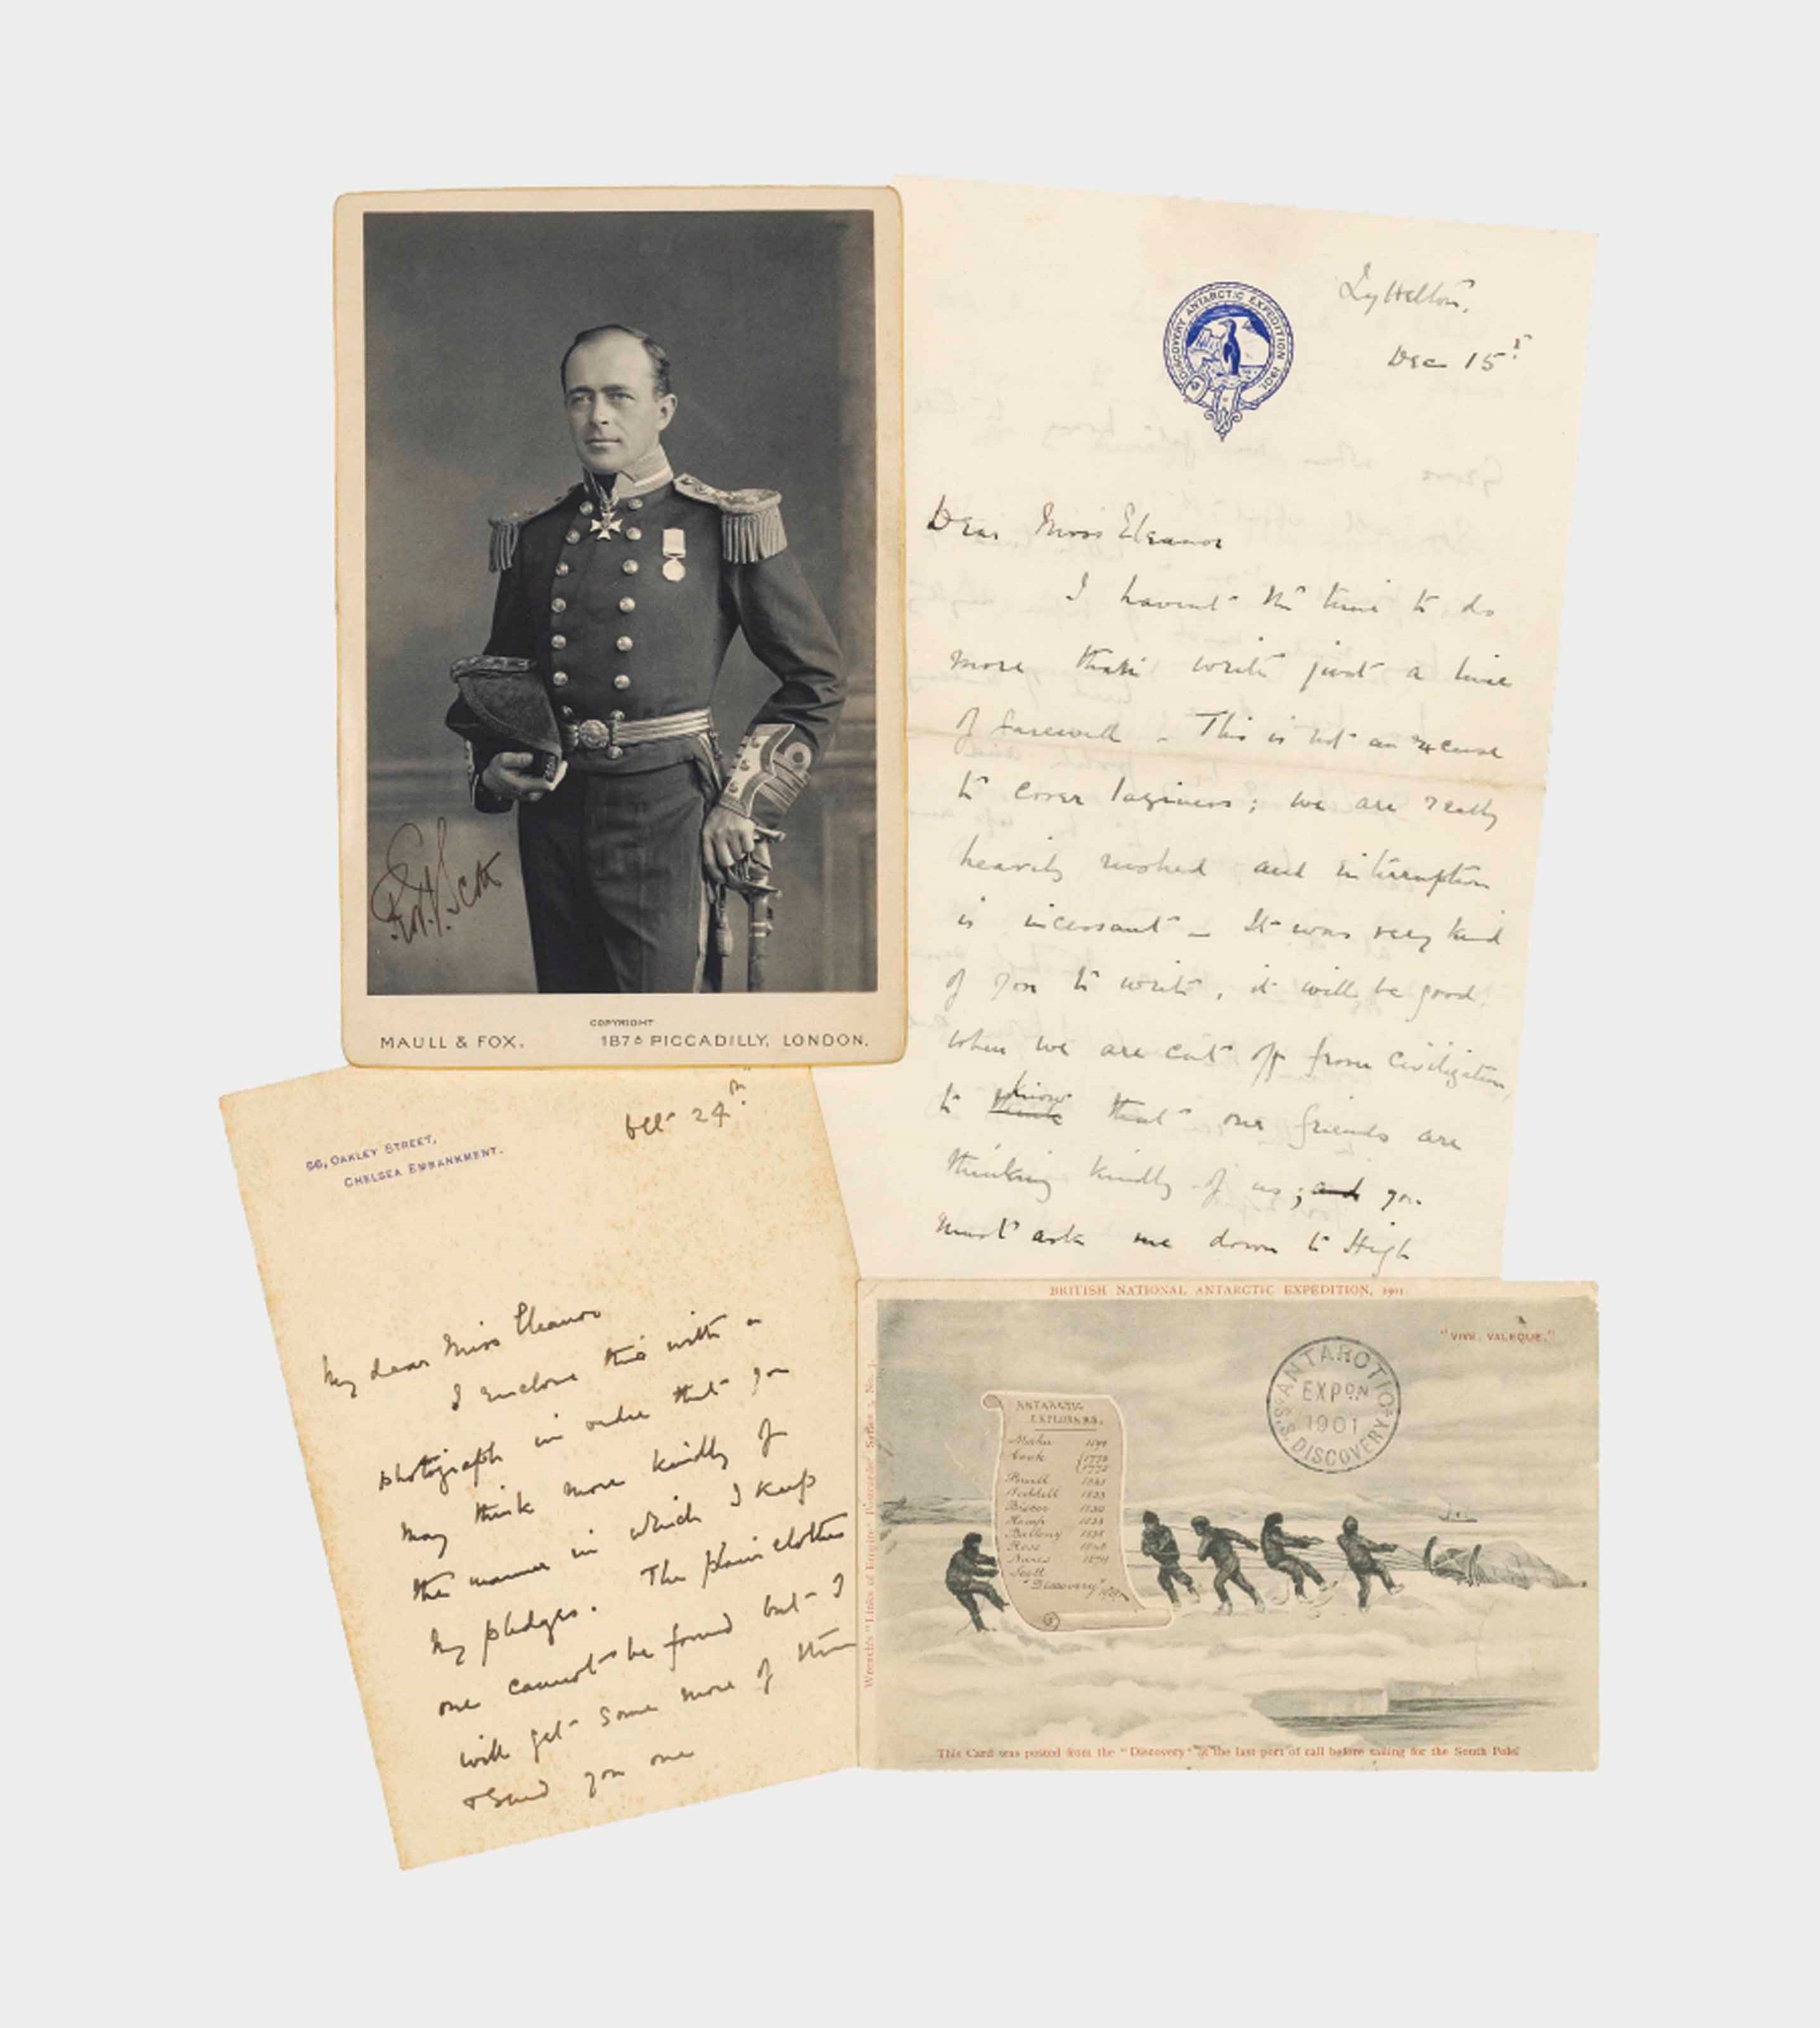 RobF. Scott
COPYRIGHT
MAULL & FOX. 187A PICCADILLY, LONDON.
DISCOVERY ANTARCTIC EXPEDITION 1901.
Lyttelton,
Dec 15th
Dear Miss Eleanor
I havent the time to do
more than write just a line
of farewell - This is not an excuse
to cover laziness; we are really
heavily rushed and interruption
is incessant - It was very kind
of you to write, it will be good
when we are cut off from civilization,
to think know that our friends are
thinking kindly of us; and you
must ask me down to High
66, OAKLEY STREET,
CHELSEA EMBANKMENT.
24th
My dear Miss Eleanor
I enclose this with a
photograph in order that you
may think more kindly of
the manner in which I keep
my pledges. The plain clothes
one cannot be found but I
will get some more of them
& send you one
BRITISH NATIONAL ANTARCTIC EXPEDITION, 1901
"VIVE, VALEQUE."
ANTARCTIC
EXPDN
1901
S.S. DISCOVERY
ANTARCTIC
EXPLORERS.
Cook 1772
1775
Weddell 1823
Biscoe 1830
Kemp 1833
Balleny
Ross
Nares 1874
Scott
"Discovery"
Wrench's "Links of Empire" Postcards Series 3, No. 1.
This Card was posted from the "Discovery" at the last port of call before sailing for the South Pole